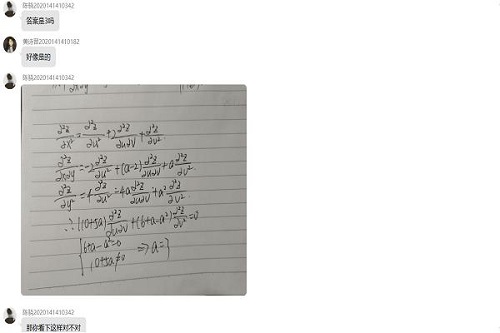 陈骁2020141410342
答案是3吗
黄诗音2020141410182
好像是的
陈骁2020141410342
∂²z/∂x² = ∂²z/∂u² + 2∂²z/∂u∂v + ∂²z/∂v²
∂²z/∂x∂y = -2∂²z/∂u² + (a-2)∂²z/∂u∂v + a∂²z/∂v²
∂²z/∂y² = 4∂²z/∂u² - 4a∂²z/∂u∂v + a²∂²z/∂v²
∴ (10+5a)∂²z/∂u∂v + (6+a-a²)∂²z/∂v² = 0
{ 6+a-a²=0
10+5a≠0 ⇒ a=3
陈骁2020141410342
那你看下这样对不对